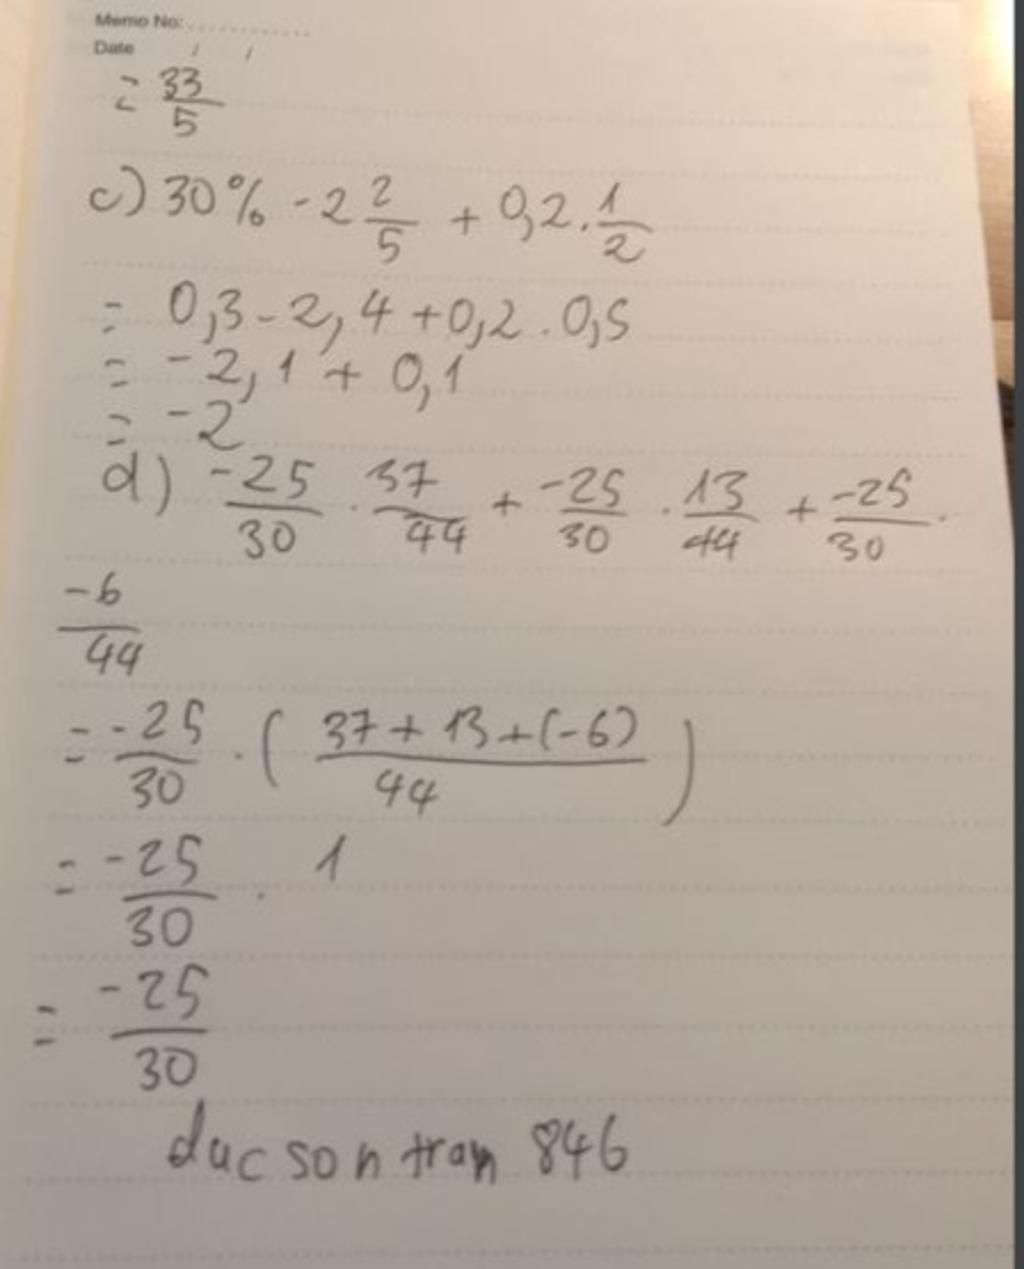 Memo No: ..............
Date / /
= 33/5
c) 30% - 2 2/5 + 0,2 . 1/2
= 0,3 - 2,4 + 0,2 . 0,5
= -2,1 + 0,1
= -2
d) -25/30 . 37/44 + -25/30 . 13/44 + -25/30 .
-6/44
= -25/30 . ( 37 + 13 + (-6) / 44 )
= -25/30 . 1
= -25/30
ducsontran 846